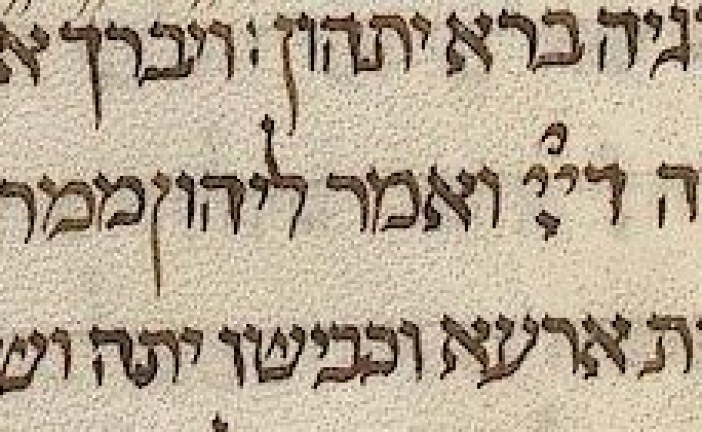 גיה ברא יתהון : ויברך א
ה דייי ואמר ליהון ממר
ית ארעא וכבישו יתה וש